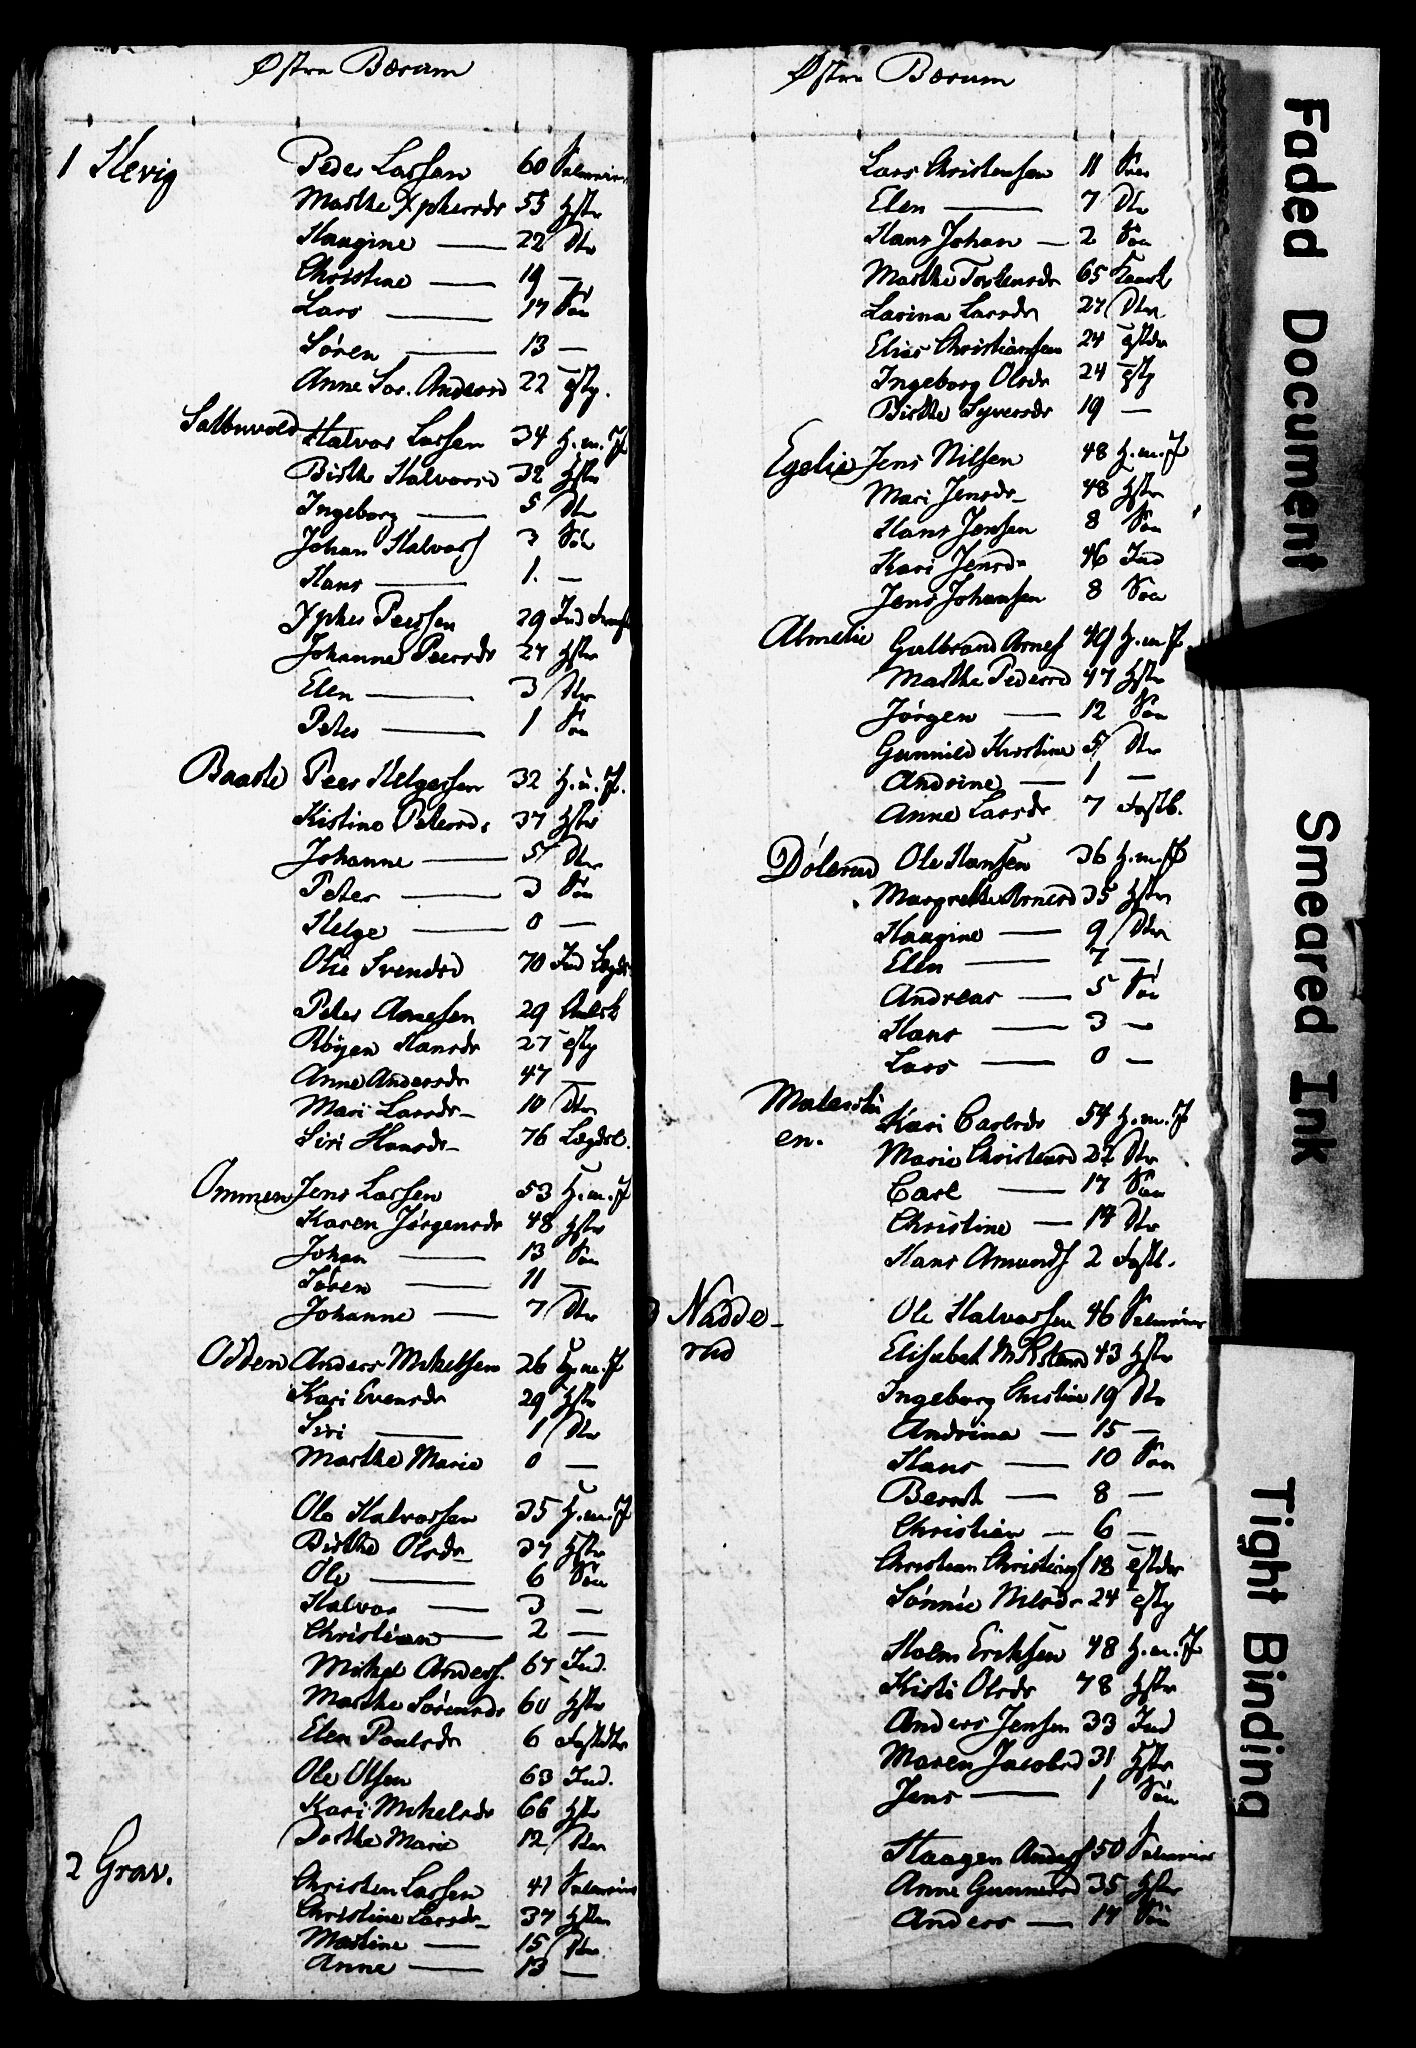 Østre Bærum
1 Høvig Peder Larsen 60 Selveier
Marthe Xphersdr 55 Hstr
Haagine — 22 Dtr
Christine — 19 —
Lars — 17 Søn
Søren — 13 —
Anne Sor. Andersd 22 Tjstp.
Halvor Larsen 34 H.m.J
Birthe Halvorsd 32 Hstr
Ingeborg — 5 Dtr
Johan Halvors 3 Søn
Hans — 1. —
Xpher Peersen 29 Ind
Johanne Peersdr 27 Hstr
Elen — 3 Dtr
Peter — 1 Søn
Peer Helgesen 32 H.m.J.
Kistine Petersdr 37 Hstr
Johanne — 5 Dtr
Peter — 3 Søn
Helge — 0 —
Olie Svendsd 70 Ind Lægds
Peter Arnesen 29
Røgen Hansdr 27
Anne Andersdr 47 —
Mari Larsdr 10 Dtr
Siri Hansdr 76 Lægdsl.
Ommen Jens Larsen 53 H.m.J
Karen Jørgensdr 48 Hstr
Johan — 13 Søn
Søren — 11 —
Johanne — 7 Dtr
Odden Anders Mikelsen 26 H.m.J
Kari Evensdr 29 Hstr
Siri — 1 Dtr
Marthe Marie 0 —
Ole Halvorsen 35 H.m.J
Birthe Olsdr 37 Hstr
Ole — 6 Søn
Halvor — 3 —
Christian — 2 —
Mikel Anders. 67 Ind.
Marthe Sørensdr 60 Hstr
Elen Paulsdr 6 Fostdtr
Ole Olsen 63 Ind.
Kari Mikelsdr 66 Hstr
Dorthe Marie 12 Dtr
2 Grav. Christen Larsen 41 Selveier
Christine Larsdr 37 Hstr
Martine — 15 Dtr
Anne — 13 —
Østre Bærum
Lars Christensen 11 Søn
Elen — 7 Dtr
Hans Johan — 2 Søn
Marthe Torstensdr 65
Larina Larsdr 27 Dtr
Elias Christiansen 24
Ingeborg Olsdr 24
Birthe Syversdr 19 —
Egelie Jens Nilsen 48 H.m.J
Mari Jensdr 48 Hstr
Hans Jensen 8 Søn
Kari Jensdr 46 Ind
Jens Johansen 8 Søn
Almelie Gulbrand Arnes 49 H.m.J
Marthe Pedersd 47 Hstr
Jørgen — 12 Søn
Gunnild Kirstine 5 Dtr
Andrine — 1 —
Anne Larsdr 7 Fostb.
Dølerud Ole Hansen 36 H.m.J
Margrethe Arnesd 35 Hstr
Haagine — 9 Dtr
Elen — 7 —
Andreas — 5 Søn
Hans — 3 —
Lars — 0 —
Kari Carlsdr 54 H.m.J
en. Marie Christiansd 22 Dtr
Carl — 17 Søn
Christine — 14 Dtr
Hans Amunds 2 Fostb.
Nadde- Ole Halvorsen 46 Selveier
rud Elisabeth 43 Hstr
Ingeborg Christine 19 Dtr
Andrina — 15 —
Hans — 10 Søn
Bernt — 8 —
Christian — 6 —
Christian Christians 18
Sønnie Nilsdr 24
Holm Eriksen 48 H.m.J
Kisti Olsdr 78 Hstr
Anders Jensen 33 Ind
Maren Jacobsd 31 Hstr
Jens — 1 Søn
Haagen Anders 50 Selveier
Anne Gunnersd 35 Hstr
Anders — 17 Søn
Faded Document
Smeared Ink
Tight Binding